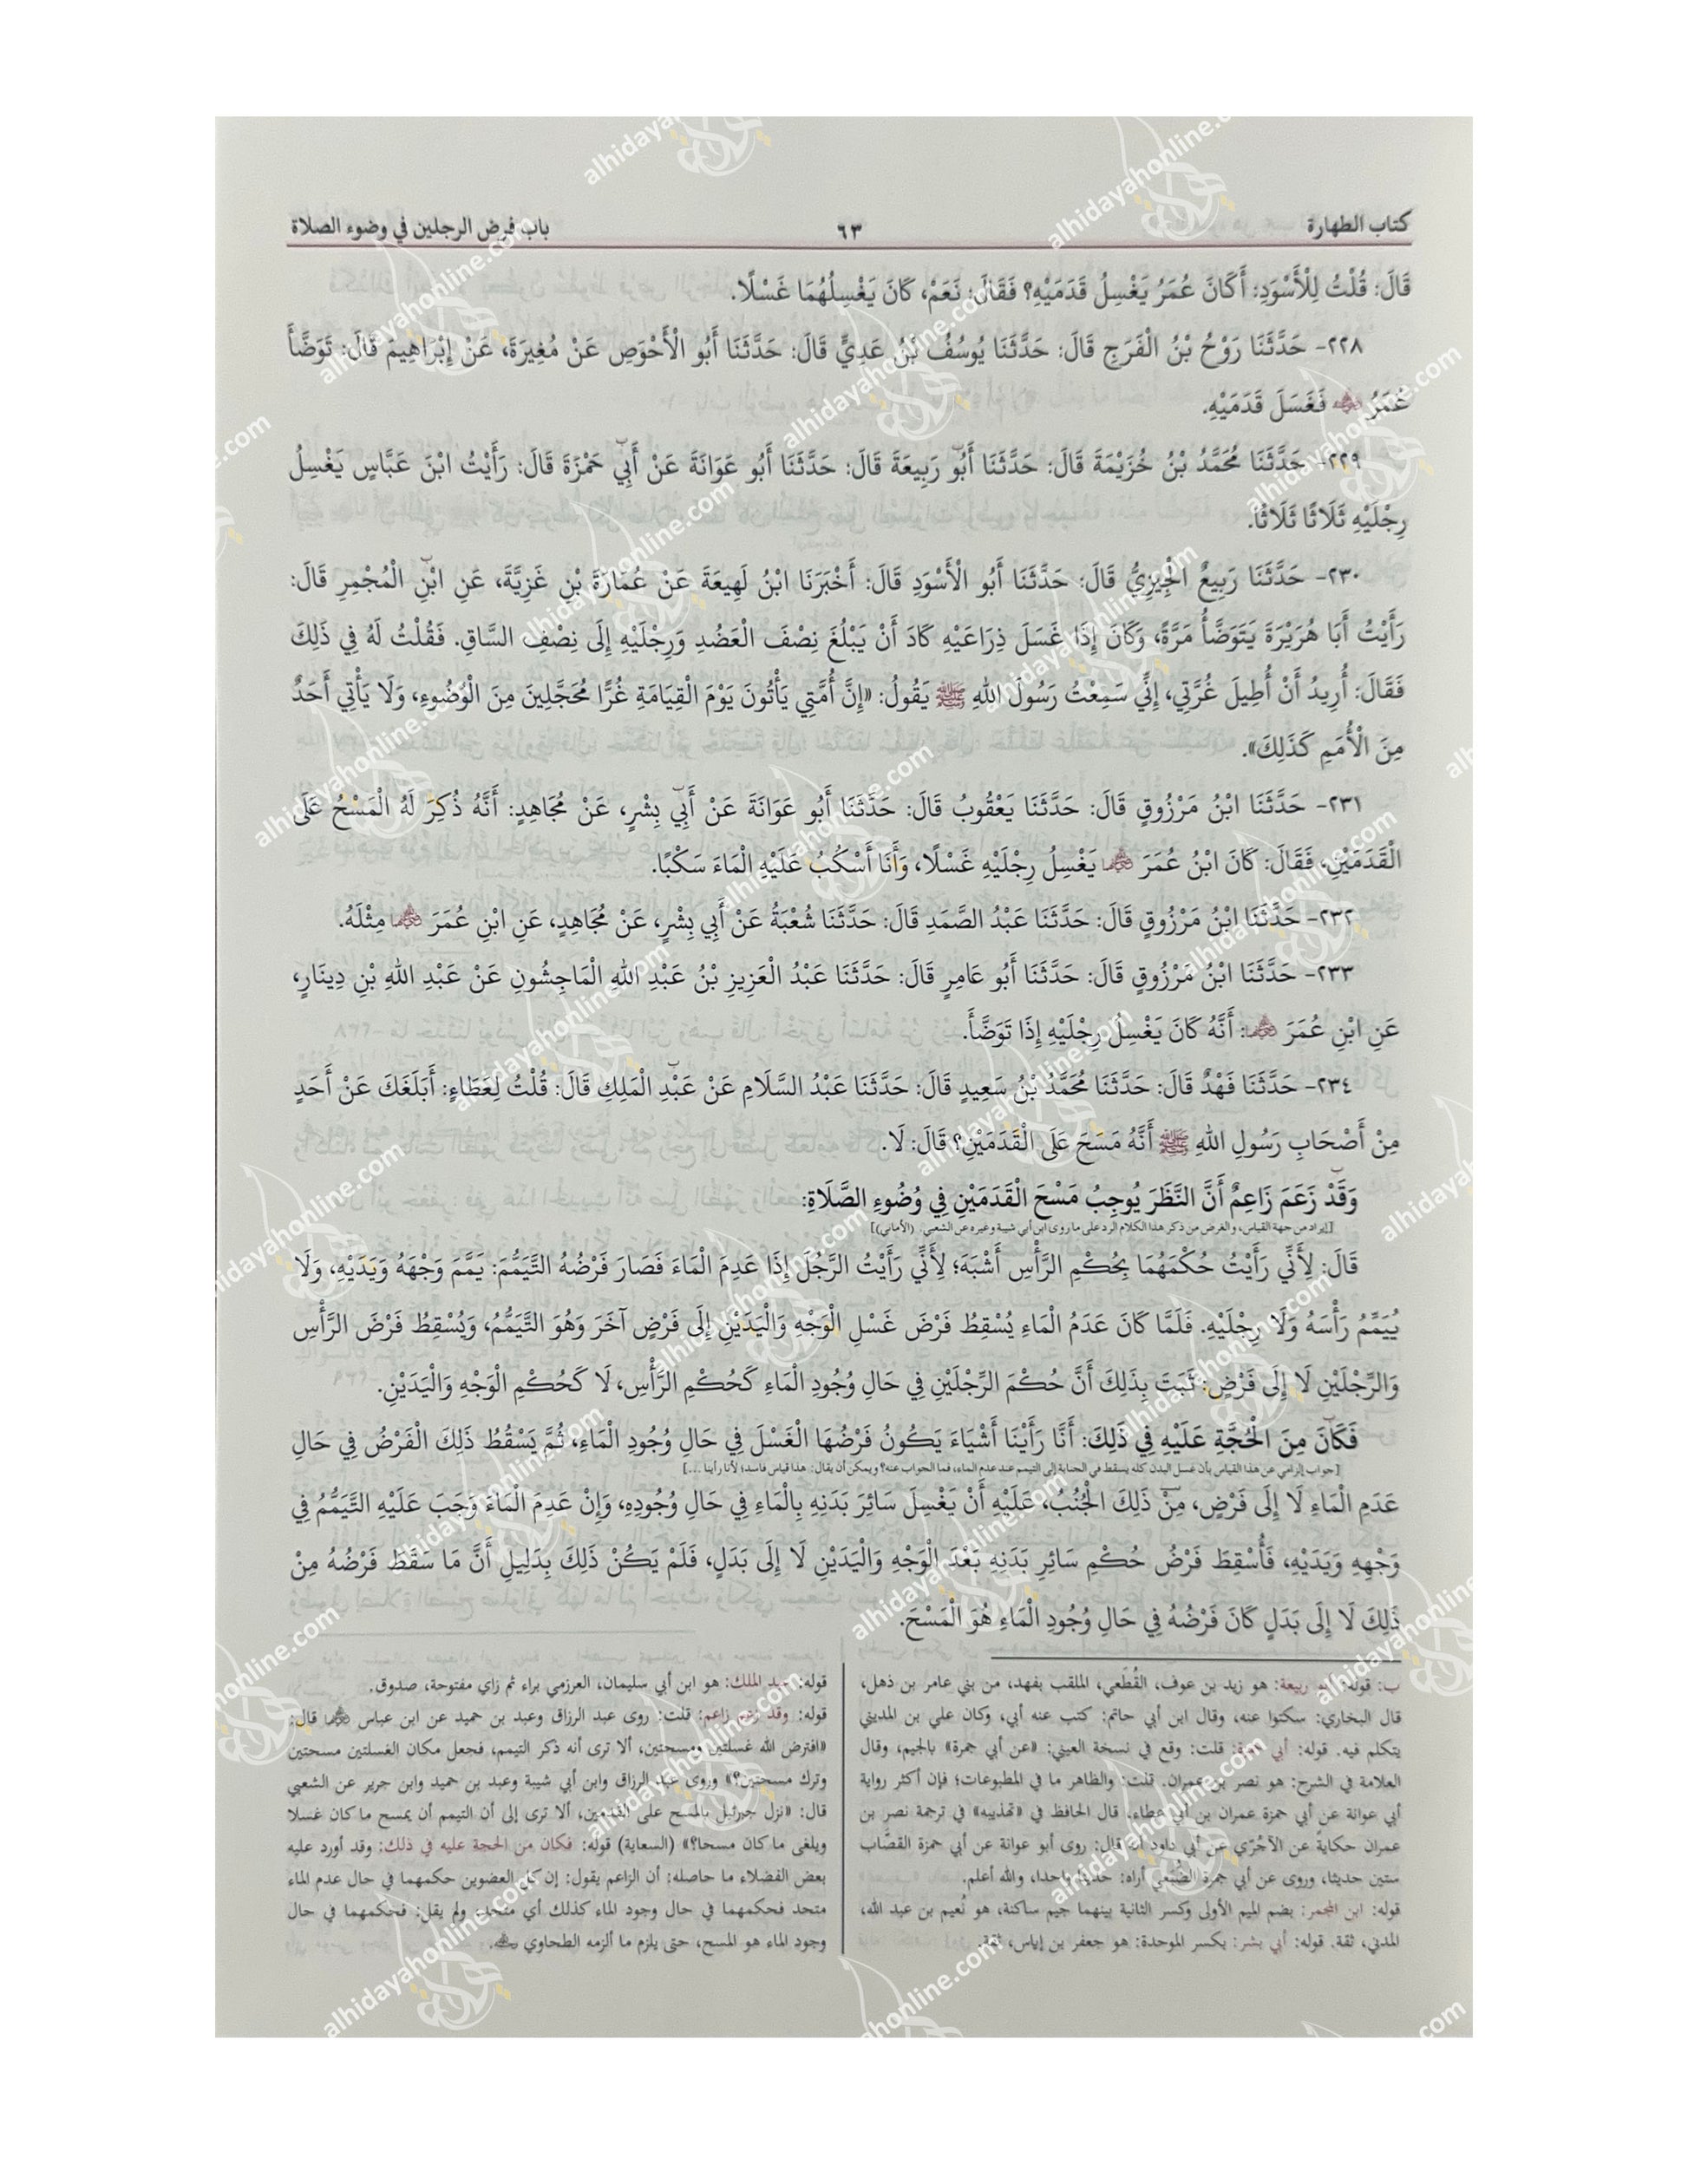 كتاب الطهارة ٦٣ باب فرض الرجلين في وضوء الصلاة
قَالَ: قُلْتُ لِلْأَسْوَدِ: أَكَانَ عُمَرُ يَغْسِلُ قَدَمَيْهِ؟ فَقَالَ: نَعَمْ، كَانَ يَغْسِلُهُمَا غَسْلًا.
٢٢٨- حَدَّثَنَا رَوْحُ بْنُ الْفَرَجِ قَالَ: حَدَّثَنَا يُوسُفُ بْنُ عَدِيٍّ قَالَ: حَدَّثَنَا أَبُو الْأَحْوَصِ عَنْ مُغِيرَةَ، عَنْ إِبْرَاهِيمَ قَالَ: تَوَضَّأَ
عُمَرُ ﵁ فَغَسَلَ قَدَمَيْهِ.
٢٢٩- حَدَّثَنَا مُحَمَّدُ بْنُ خُزَيْمَةَ قَالَ: حَدَّثَنَا أَبُو رَبِيعَةَ قَالَ: حَدَّثَنَا أَبُو عَوَانَةَ عَنْ أَبِي حَمْزَةَ قَالَ: رَأَيْتُ ابْنَ عَبَّاسٍ يَغْسِلُ
رِجْلَيْهِ ثَلَاثًا ثَلَاثًا.
٢٣٠- حَدَّثَنَا رَبِيعُ الْجِيزِيُّ قَالَ: حَدَّثَنَا أَبُو الْأَسْوَدِ قَالَ: أَخْبَرَنَا ابْنُ لَهِيعَةَ عَنْ عُمَارَةَ بْنِ غَزِيَّةَ، عَنِ ابْنِ الْمُجْمِرِ قَالَ:
رَأَيْتُ أَبَا هُرَيْرَةَ يَتَوَضَّأُ مَرَّةً، وَكَانَ إِذَا غَسَلَ ذِرَاعَيْهِ كَادَ أَنْ يَبْلُغَ نِصْفَ الْعَضُدِ وَرِجْلَيْهِ إِلَى نِصْفِ السَّاقِ. فَقُلْتُ لَهُ فِي ذَلِكَ
فَقَالَ: أُرِيدُ أَنْ أُطِيلَ غُرَّتِي، إِنِّي سَمِعْتُ رَسُولَ اللهِ ﷺ يَقُولُ: «إِنَّ أُمَّتِي يَأْتُونَ يَوْمَ الْقِيَامَةِ غُرًّا مُحَجَّلِينَ مِنَ الْوُضُوءِ، وَلَا يَأْتِي أَحَدٌ
مِنَ الْأُمَمِ كَذَلِكَ».
٢٣١- حَدَّثَنَا ابْنُ مَرْزُوقٍ قَالَ: حَدَّثَنَا يَعْقُوبُ قَالَ: حَدَّثَنَا أَبُو عَوَانَةَ عَنْ أَبِي بِشْرٍ، عَنْ مُجَاهِدٍ: أَنَّهُ ذُكِرَ لَهُ الْمَسْحُ عَلَى
الْقَدَمَيْنِ، فَقَالَ: كَانَ ابْنُ عُمَرَ ﵄ يَغْسِلُ رِجْلَيْهِ غَسْلًا، وَأَنَا أَسْكُبُ عَلَيْهِ الْمَاءَ سَكْبًا.
٢٣٢- حَدَّثَنَا ابْنُ مَرْزُوقٍ قَالَ: حَدَّثَنَا عَبْدُ الصَّمَدِ قَالَ: حَدَّثَنَا شُعْبَةُ عَنْ أَبِي بِشْرٍ، عَنْ مُجَاهِدٍ، عَنِ ابْنِ عُمَرَ ﵄ مِثْلَهُ.
٢٣٣- حَدَّثَنَا ابْنُ مَرْزُوقٍ قَالَ: حَدَّثَنَا أَبُو عَامِرٍ قَالَ: حَدَّثَنَا عَبْدُ الْعَزِيزِ بْنُ عَبْدِ اللهِ الْمَاجِشُونِ عَنْ عَبْدِ اللهِ بْنِ دِينَارٍ،
عَنِ ابْنِ عُمَرَ ﵄: أَنَّهُ كَانَ يَغْسِلُ رِجْلَيْهِ إِذَا تَوَضَّأَ.
٢٣٤- حَدَّثَنَا فَهْدٌ قَالَ: حَدَّثَنَا مُحَمَّدُ بْنُ سَعِيدٍ قَالَ: حَدَّثَنَا عَبْدُ السَّلَامِ عَنْ عَبْدِ الْمَلِكِ قَالَ: قُلْتُ لِعَطَاءٍ: أَبَلَغَكَ عَنْ أَحَدٍ
مِنْ أَصْحَابِ رَسُولِ اللهِ ﷺ أَنَّهُ مَسَحَ عَلَى الْقَدَمَيْنِ؟ قَالَ: لَا.
وَقَدْ زَعَمَ زَاعِمٌ أَنَّ النَّظَرَ يُوجِبُ مَسْحَ الْقَدَمَيْنِ فِي وُضُوءِ الصَّلَاةِ:
[إيراد من جهة القياس، والغرض من ذكر هذا الكلام الرد على ما روى ابن أبي شيبة وغيره عن الشعبي. (الأماني)]
قَالَ: لِأَنِّي رَأَيْتُ حُكْمَهُمَا بِحُكْمِ الرَّأْسِ أَشْبَهَ؛ لِأَنِّي رَأَيْتُ الرَّجُلَ إِذَا عَدِمَ الْمَاءَ فَصَارَ فَرْضُهُ التَّيَمُّمَ: يَمَّمَ وَجْهَهُ وَيَدَيْهِ، وَلَا
يُيَمِّمُ رَأْسَهُ وَلَا رِجْلَيْهِ. فَلَمَّا كَانَ عَدَمُ الْمَاءِ يُسْقِطُ فَرْضَ غَسْلِ الْوَجْهِ وَالْيَدَيْنِ إِلَى فَرْضٍ آخَرَ وَهُوَ التَّيَمُّمُ، وَيُسْقِطُ فَرْضَ الرَّأْسِ
وَالرِّجْلَيْنِ لَا إِلَى فَرْضٍ: ثَبَتَ بِذَلِكَ أَنَّ حُكْمَ الرِّجْلَيْنِ فِي حَالِ وُجُودِ الْمَاءِ كَحُكْمِ الرَّأْسِ، لَا كَحُكْمِ الْوَجْهِ وَالْيَدَيْنِ.
فَكَانَ مِنَ الْحُجَّةِ عَلَيْهِ فِي ذَلِكَ: أَنَّا رَأَيْنَا أَشْيَاءَ يَكُونُ فَرْضُهَا الْغَسْلَ فِي حَالِ وُجُودِ الْمَاءِ، ثُمَّ يَسْقُطُ ذَلِكَ الْفَرْضُ فِي حَالِ
[جواب إلزامي عن هذا القياس بأن غسل البدن كله يسقط في الجنابة إلى التيمم عند عدم الماء، فما الجواب عنه؟ ويمكن أن يقال: هذا قياس فاسد؛ لأنا رأينا ...]
عَدَمِ الْمَاءِ لَا إِلَى فَرْضٍ، مِنْ ذَلِكَ الْجُنُبُ، عَلَيْهِ أَنْ يَغْسِلَ سَائِرَ بَدَنِهِ بِالْمَاءِ فِي حَالِ وُجُودِهِ، وَإِنْ عَدِمَ الْمَاءَ وَجَبَ عَلَيْهِ التَّيَمُّمُ فِي
وَجْهِهِ وَيَدَيْهِ، فَأُسْقِطَ فَرْضُ حُكْمِ سَائِرِ بَدَنِهِ بَعْدَ الْوَجْهِ وَالْيَدَيْنِ لَا إِلَى بَدَلٍ، فَلَمْ يَكُنْ ذَلِكَ بِدَلِيلِ أَنَّ مَا سَقَطَ فَرْضُهُ مِنْ
ذَلِكَ لَا إِلَى بَدَلٍ كَانَ فَرْضُهُ فِي حَالِ وُجُودِ الْمَاءِ هُوَ الْمَسْحَ.
ب: قوله: أبو ربيعة: هو زيد بن عوف، القُطَعي، الملقب بفهد، من بني عامر بن ذهل،
قال البخاري: سكتوا عنه، وقال ابن أبي حاتم: كتب عنه أبي، وكان علي بن المديني
يتكلم فيه. قوله: أبي حمزة: قلت: وقع في نسخة العيني: «عن أبي جمرة» بالجيم، وقال
العلامة في الشرح: هو نصر بن عمران. قلت: والظاهر ما في المطبوعات؛ فإن أكثر رواية
أبي عوانة عن أبي حمزة عمران بن أبي عطاء. قال الحافظ في «تهذيبه» في ترجمة نصر بن
عمران حكاية عن الآجُرّي عن أبي داود أنه قال: روى أبو عوانة عن أبي حمزة القصَّاب
ستين حديثا، وروى عن أبي جمرة الضُّبَعي أراه: حديثا واحدا، والله أعلم.
قوله: ابن المجمر: بضم الميم الأولى وكسر الثانية بينهما جيم ساكنة، هو نُعيم بن عبد الله،
المدني، ثقة. قوله: أبي بشر: بكسر الموحدة: هو جعفر بن إياس، ثقة.
قوله: عبد الملك: هو ابن أبي سليمان، العرزمي براء ثم زاي مفتوحة، صدوق.
قوله: وقد زعم زاعم: قلت: روى عبد الرزاق وعبد بن حميد عن ابن عباس ﵄ قال:
«افترض الله غسلتين ومسحتين، ألا ترى أنه ذكر التيمم، فجعل مكان الغسلتين مسحتين
وترك مسحتين؟» وروى عبد الرزاق وابن أبي شيبة وعبد بن حميد وابن جرير عن الشعبي
قال: «نزل جبرئيل بالمسح على القدمين، ألا ترى إلى أن التيمم أن يمسح ما كان غسلا
ويلغى ما كان مسحا؟» (السعاية) قوله: فكان من الحجة عليه في ذلك: وقد أورد عليه
بعض الفضلاء ما حاصله: أن الزاعم يقول: إن كل العضوين حكمهما في حال عدم الماء
متحد فحكمهما في حال وجود الماء كذلك أي متحد، ولم يقل: فحكمهما في حال
وجود الماء هو المسح، حتى يلزم ما ألزمه الطحاوي ﵀.
alhidayahonline.com